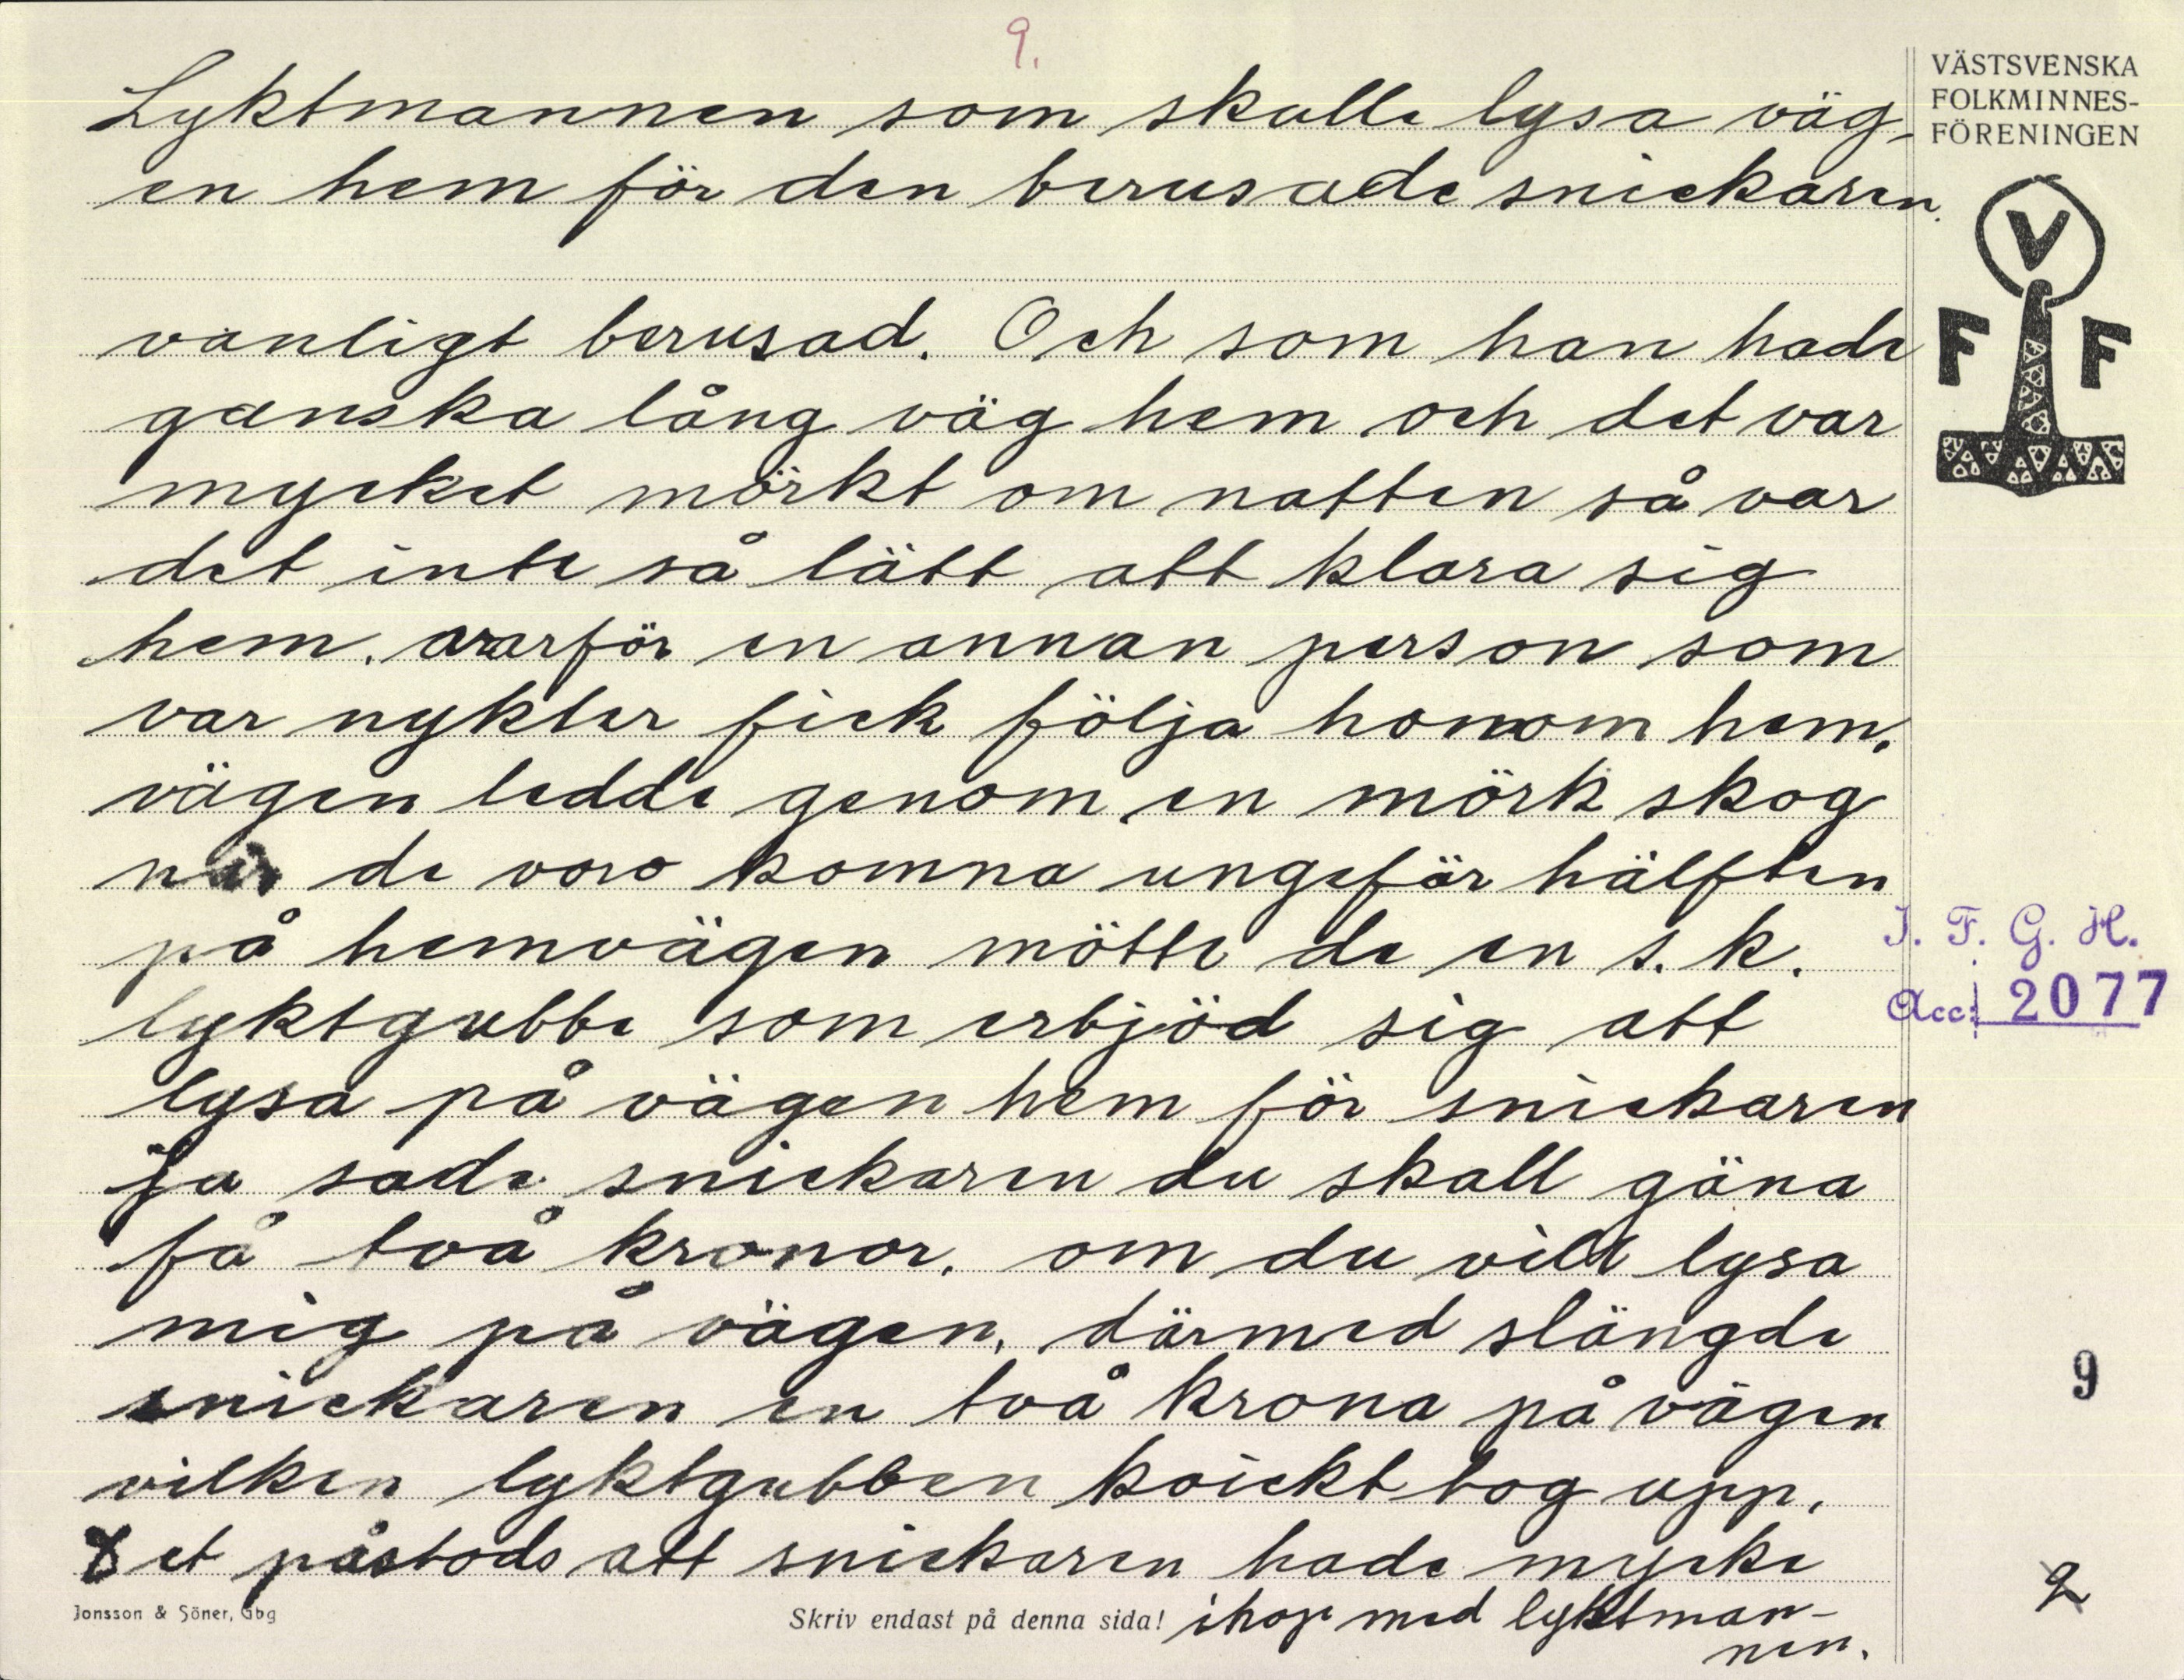 9.
VÄSTSVENSKA
FOLKMINNES-
FÖRENINGEN
Lyktmannen som skulle lysa väg-
en hem för den berusade snickaren.
V
F F
vanligt berusad. Och som han hade
ganska lång väg hem och det var
mycket mörkt om natten så var
det inte så lätt att klara sig
hem. varför en annan person som
var nykter fick följa honom hem.
vägen ledde genom en mörk skog
när de voro komna ungefär hälften
på hemvägen mötte de en s.k.
lyktgubbe som erbjöd sig att
lysa på vägen hem för snickaren
ja sade snickaren du skall gäna
få två kronor. om du vill lysa
mig på vägen. därmed slängde
snickaren en två krona på vägen
vilken lyktgubben kvickt tog upp.
Det påstods att snickaren hade mycke
ihop med lyktman-
nen.
I. F. G. H.
Acc: 2077
9
2
Jonsson & Söner, Gbg
Skriv endast på denna sida!